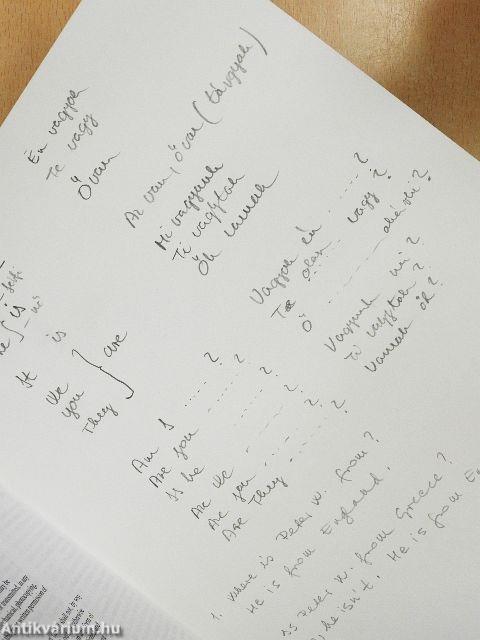 Én vagyok
Te vagy
Ő van
Az van, Ő van (tárgyak)
Mi vagyunk
Ti vagytok
Ők vannak
Vagyok én ...... ?
Te olyan vagy?
Ő
Vagyunk mi?
Ti vagytok?
Vannak ők?
férfi
is
nő
It is
We
you } are
They
Am I ..... ?
Are you ..... ?
Is he ..... ?
Are We ..... ?
Are you ..... ?
Are They ..... ?
1. Where is Peter W. from?
He is from England.
Peter W. from Greece?
he isn't. He is from E
Antikvárium.hu